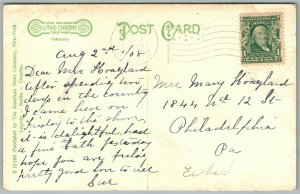 LITHO-CHROME
Germany
POST CARD
Aug 2nd '08
Dear Mrs Hoagland
After spending two
days in the country
I came here on
Friday to the shore.
it is delightful. had
a fine bath yesterday
hope you are feeling
pretty good love to all
Sue
Mrs Mary Hoagland
1844 N 12 St
Philadelphia
Pa